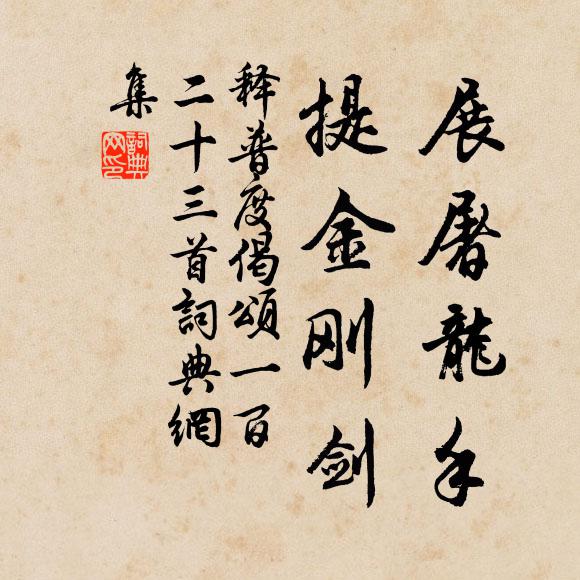 展屠龍手
提金刚剑
释普度偈頌一百
二十三首詞典網
集
詞典
网印